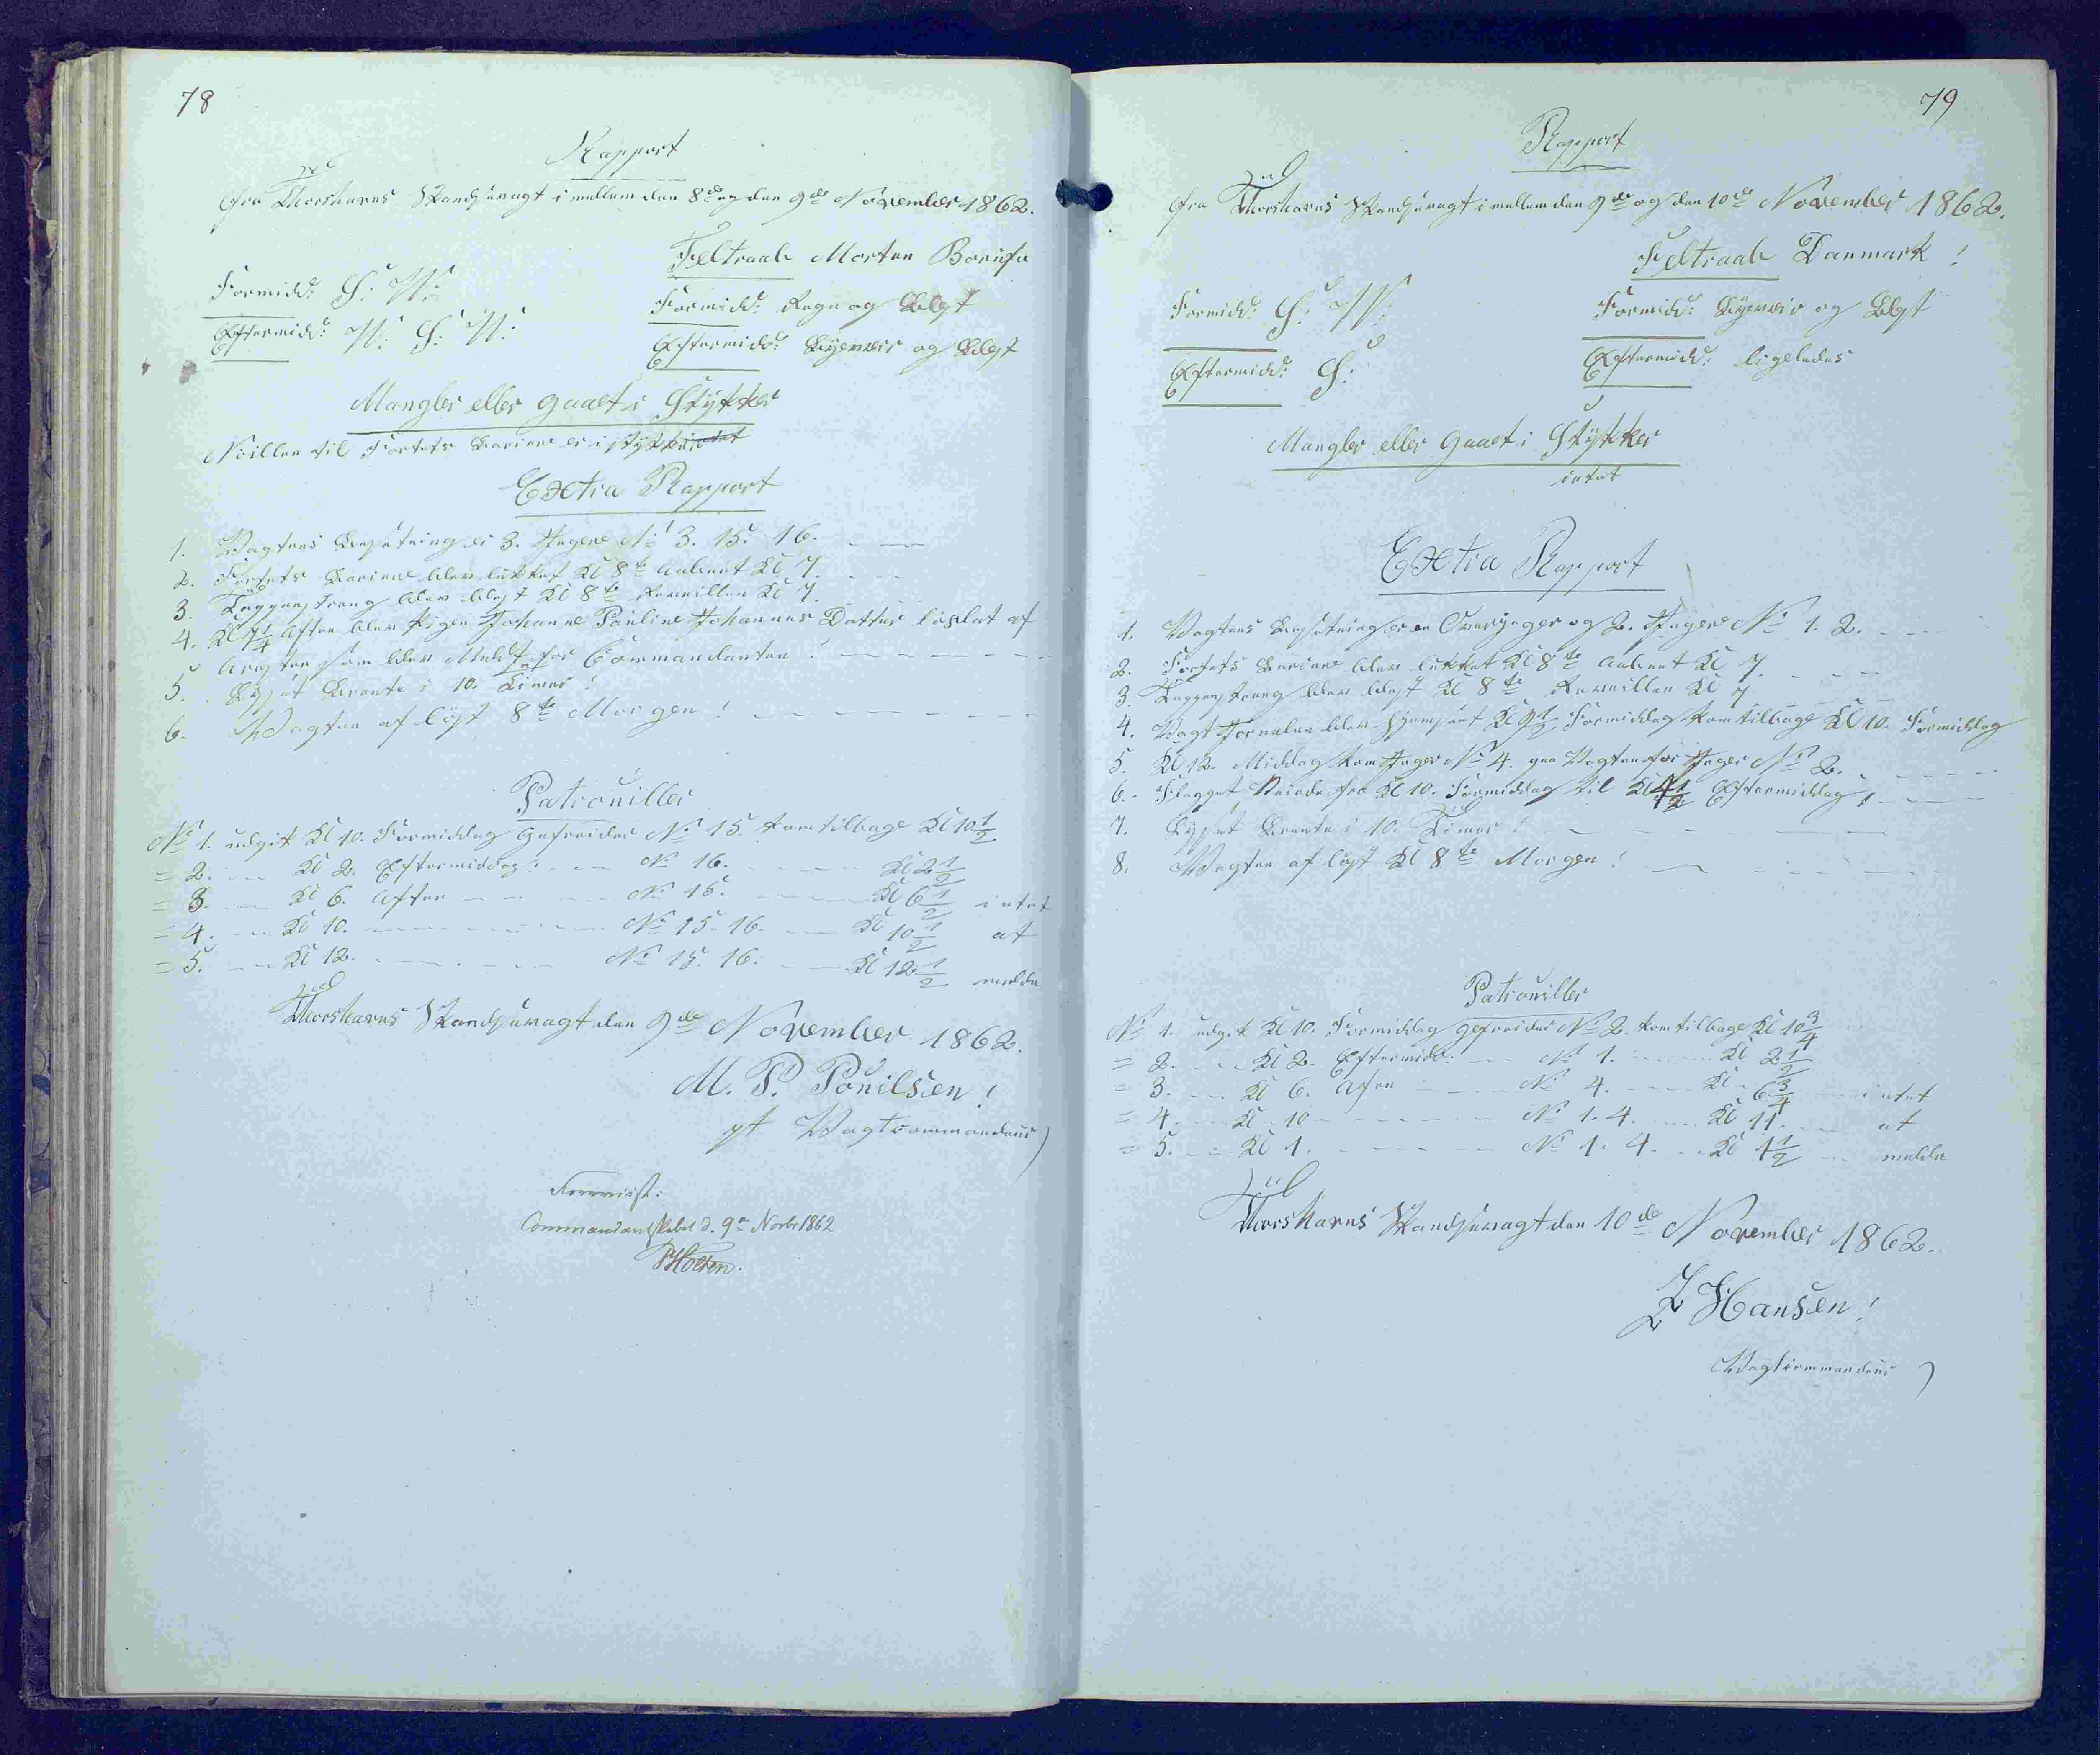 78
Rapport
fra Thorshavns Skandsevagt i mellem den 8de og den 9de November 1862.
Feltraab Morten
Formidd: S: W:
Formidd: Regn og Blæst
Eftermidd: W: S: W:
Eftermidd: Byeveir og Blæst
Mangler eller gaaet i Stykker
Nöillen til Fortets Bariere er i stykker intet
Extra Rapport
1. Vagtens Besætning er 3. Jægere No 3. 15. 16.
2. Fortets Bariere blev lukket Kl 8te Aabnet Kl 7.
3. Tappenstreng blev blæst Kl 8te Reveillen Kl 7.
4. Kl 7 1/4 Aften blev Pigen Johanne Pauline Johannes Datter löslat af
Aresten som blev Meldt for Commandanten!
5. Lyset Brente i 10. Timer!
6. Vagten aflöst 8te Morgen!
Patrouiller
No 1. udgik Kl 10. Formiddag Gefreider No 15. kom tilbage Kl 10 1/2
= 2. Kl 2. Eftermiddag: No 16. Kl 2 1/2
= 3. Kl 6. Aften No 15. Kl 6 1/2 intet
= 4. Kl 10. No 15. 16. Kl 10 1/2 at
= 5. Kl 12. No 15. 16. Kl 12 1/2 melde
Thorshavns Skandsevagt den 9de November 1862.
M. P. Pouilsen!
pt Vagtcommandeur
Foreviist:
Commandantskabet d. 9n Novbr 1862
HHolten.
79
Rapport
fra Thorshavns Skandsevagt i mellem den 9de og den 10de November 1862.
Feltraab Danmark!
Formidd: S: W:
Formidd: Byeveir og Blæst
Eftermidd: S:
Eftermidd: ligeledes
Mangler eller gaaet i Stykker
intet
Extra Rapport
1. Vagtens Besætning er en Overjæger og 2. Jægere No 1. 2.
2. Fortets Bariere blev lukket Kl 8te Aabnet Kl 7
3. Tappenstreng blev blæst Kl 8te Reveillen Kl 7
4. Vagt Jornalen blev hjemsent Kl 9 1/2 Formiddag kom tilbage Kl 10. Formiddag
5. Kl 12. Middag kom Jæger No 4. paa Vagten for Jæger No 2.
6. Flagget Vaiede fra Kl 10. Formiddag til Kl 4 1/2 Eftermiddag!
7. Lyset Brente i 10. Timer!
8. Vagten aflöst Kl 8te Morgen!
Patrouiller
No 1. udgik Kl 10. Formiddag Gefreider No 2. kom tilbage Kl 10 3/4
= 2. Kl 2. Eftermidd: No 1. Kl 2 1/2
= 3. Kl 6. Aften No 4. Kl 6 3/4 intet
= 4. Kl 10 No 1. 4. Kl 11. at
= 5. Kl 1. No 1. 4. Kl 1 1/2 melde
Thorshavns Skandsevagt den 10de November 1862.
Z Hansen!
Vagtcommandeur